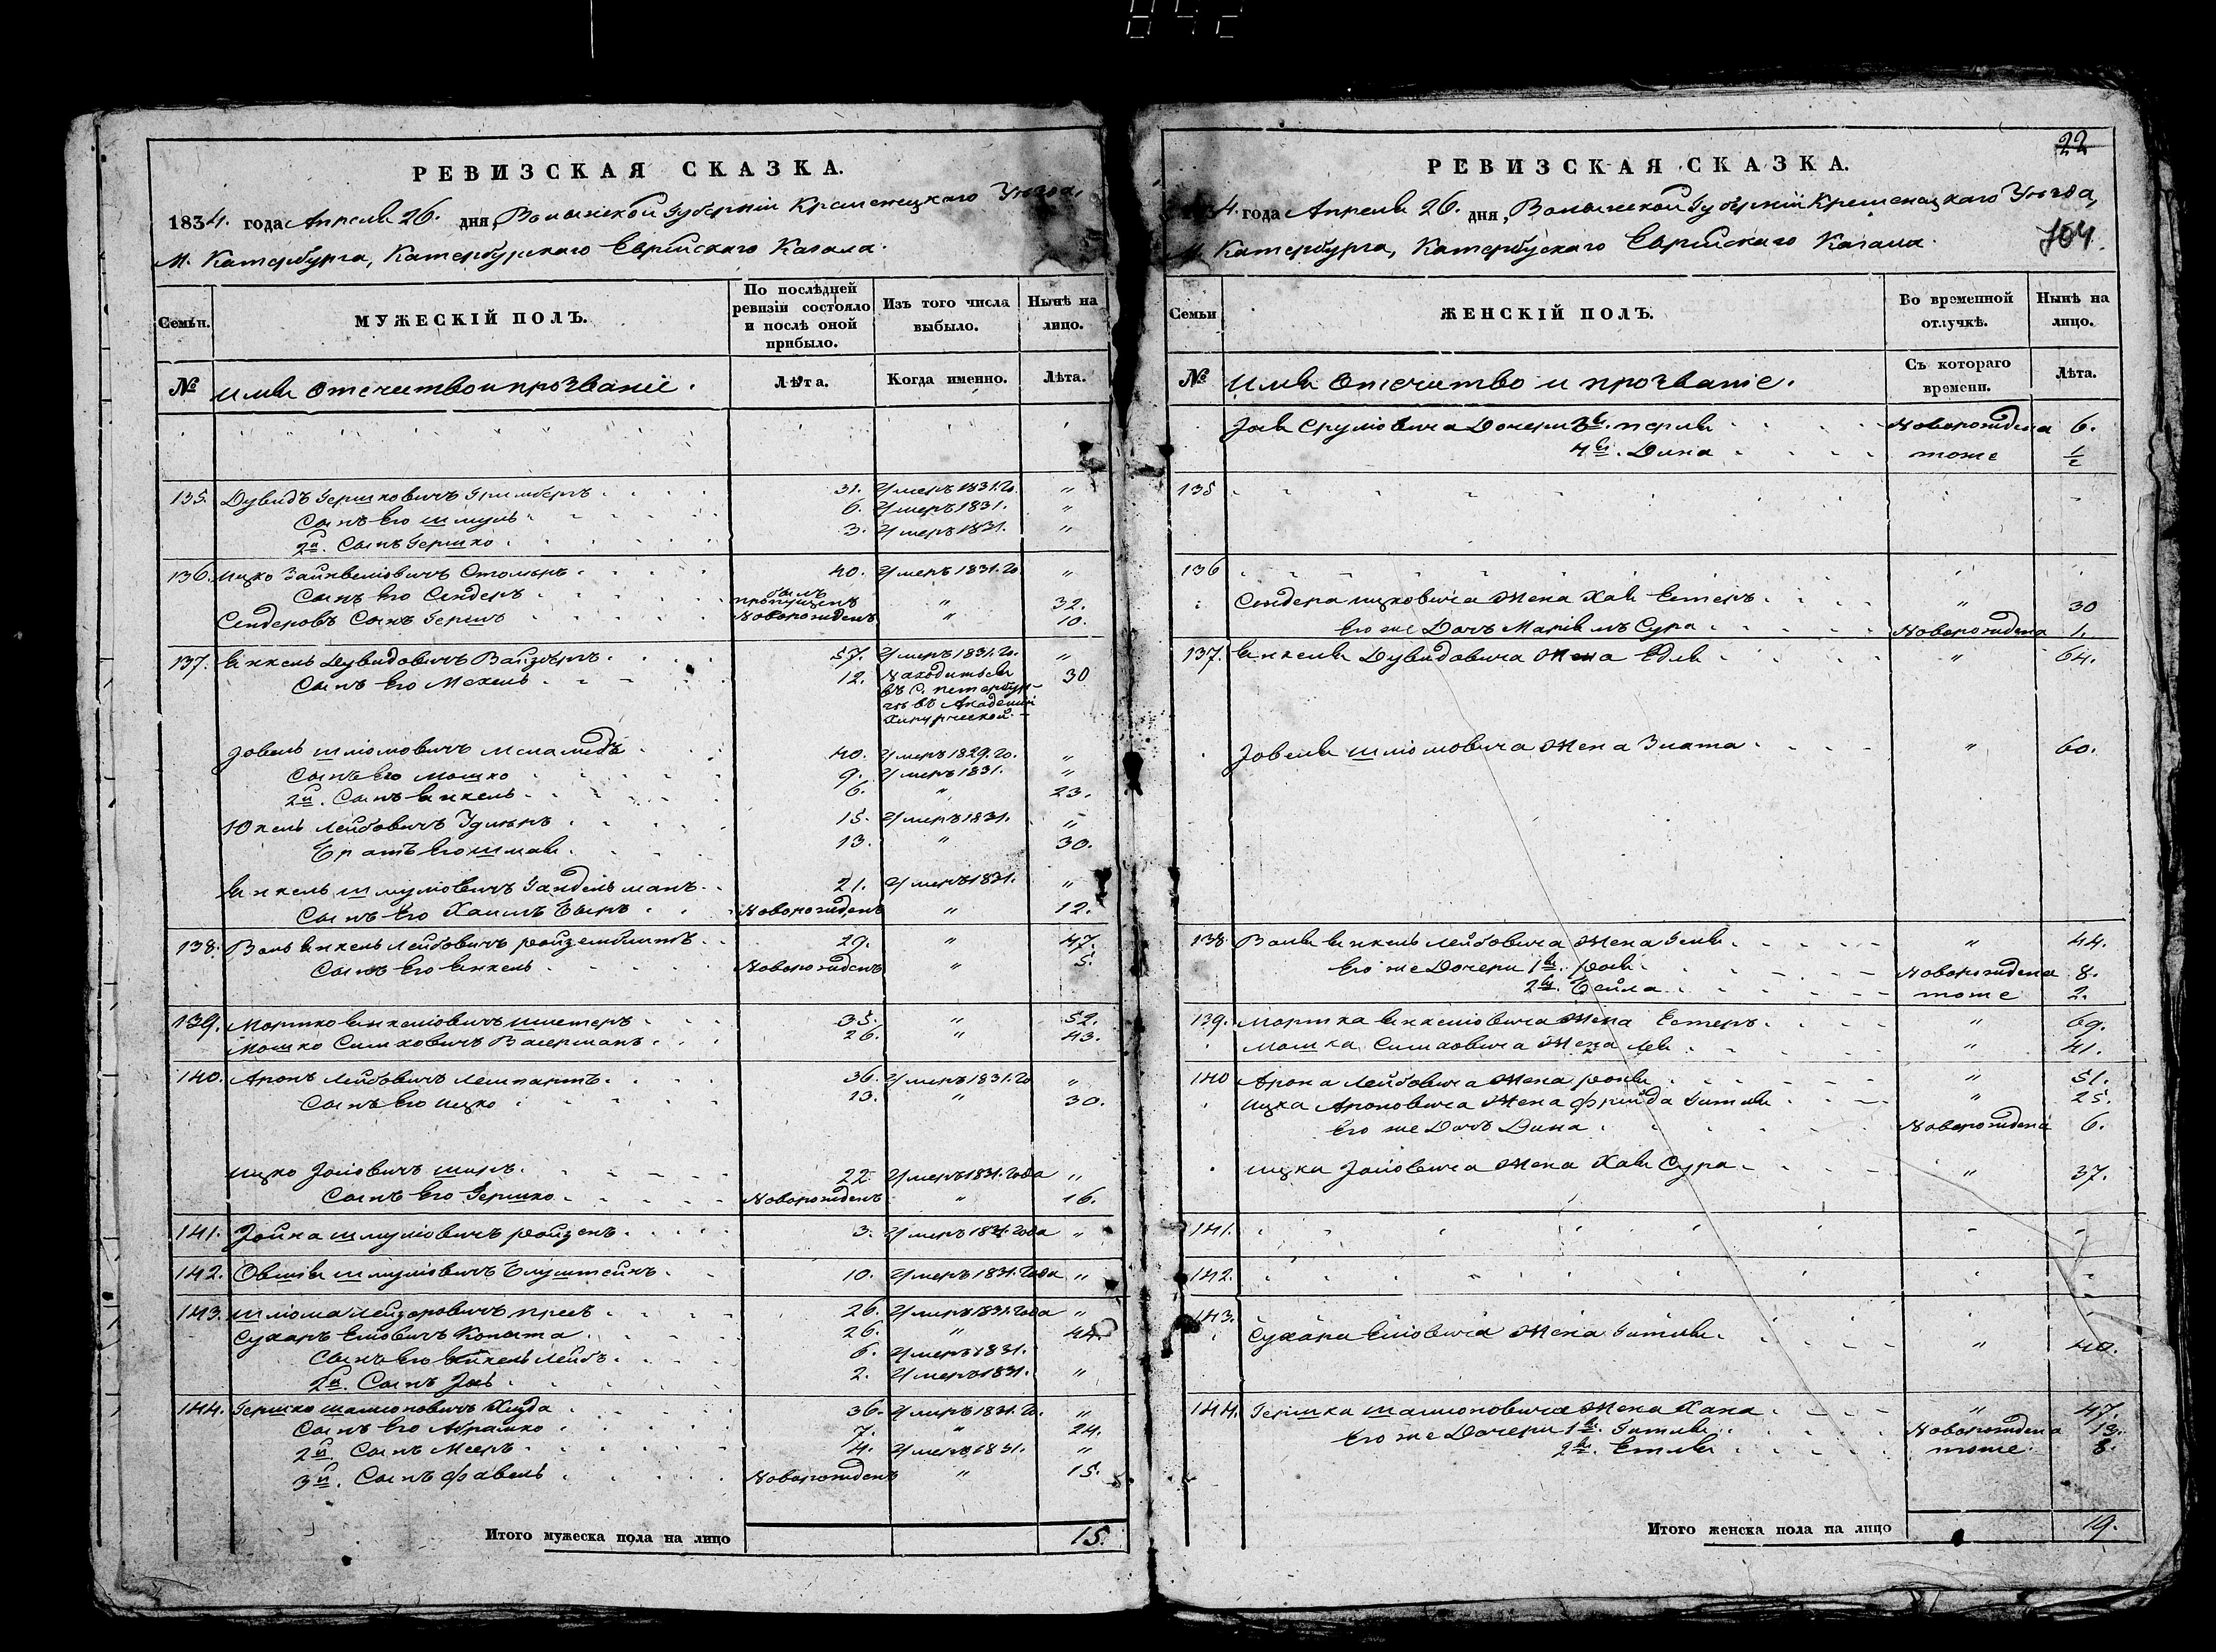 РЕВИЗСКАЯ СКАЗКА.
1834. года Апреля 26. дня, Волынской Губернии Кременецкаго Уезда,
М. Катербурга, Катербурскаго Еврейскаго Кагала.
Семьи.
МУЖЕСКІЙ ПОЛЪ.
По послѣдней ревизіи состояло и послѣ оной прибыло.
Изъ того числа выбыло.
Нынѣ на лицо.
№ Имя Отечество и прозваніе. Лѣта. Когда именно. Лѣта.
135. Дувидъ Гершковичъ 31. Умеръ 1831. го. "
Сынъ Его Шмуль 6. Умеръ 1831. "
2й. Сынъ Гершко 3. Умеръ 1831. "
136. Ицко Зайнвеліовичъ 40. Умеръ 1831. го "
Сынъ Его Сендеръ былъ пропущенъ " 32.
Сендеровъ Сынъ Гершъ Новорожденъ " 10.
137. Янкель Дувидовичъ 57. Умеръ 1831. го. "
Сынъ Его Мехель 12. Находиться въ С. петербургѣ въ Академіи 30
Іовель Шліомовичъ Меламедъ 40. Умеръ 1829. го. "
Сынъ Его Мошко 9. Умеръ 1831. "
2й. Сынъ Янкель 6. " 23.
Юкель Лейбовичъ 15. Умеръ 1831. "
Братъ Его 13. " 30.
Янкель Шмуліовичъ Гандельманъ 21. Умеръ 1831. "
Сынъ Его Хаимъ Беръ Новорожденъ " 12.
138. Янкель Лейбовичъ 29. " 47.
Сынъ Его Янкель Новорожденъ " 5.
139. Мортко Янкеліовичъ Шметеръ 35. " 52.
Мошко Симховичъ Васерманъ 26. " 43.
140. Аронъ Лейбовичъ Лемпартъ 36. Умеръ 1831. го "
Сынъ Его Ицко 13. " 30.
Ицко Ширъ 22. Умеръ 1831. года "
Сынъ Его Гершко Новорожденъ " 16.
141. Іойна Шмуліовичъ Ройзенъ 3. Умеръ 1831. года "
142. Овшія Шмуліовичъ Блуштейнъ 10. Умеръ 1831. года "
143. Шліома Лейзоровичъ 26. Умеръ 1831. года "
Сухаръ Еліовичъ Копыта 26. " 44.
Сынъ Его Лейбъ 6. Умеръ 1831.
2й. Сынъ 2. Умеръ 1831. "
144. Гершко Шаліоновичъ 36. Умеръ 1831. го. "
Сынъ Его Абрамко 7. " 24.
2й. Сынъ Мееръ 4. Умеръ 1831. "
3й. Сынъ Файвель Новорожденъ " 15.
Итого мужеска пола на лицо 15.
22
РЕВИЗСКАЯ СКАЗКА.
4. года Апреля 26. дня, Волынской Губерніи Кременецкаго Уезда,
М. Катербурга, Катербускаго Еврейскаго Кагала.
704.
Семьи
ЖЕНСКІЙ ПОЛЪ.
Во временной отлучкѣ.
Нынѣ на лицо.
№ Имя Отечество и прозваніе. Съ котораго времени. Лѣта.
Сруліовича Дочери 3я. перля Новорождена 6.
4я. Дина тоже 1/2
135
136
Сендера Ицковича Жена Хая Естеръ " 30
Его же Дочь Маріямъ Сура Новорождена 1.
137. Янкеля Дувидовича Жена Едля " 64.
Іовеля Шліомовича Жена Злата " 60.
138 Янкель Лейбовича Жена " 44.
Его же Дочери 1я. Новорождена 8.
2я. Бейла тоже 2.
139. Мортка Янкеліовича Жена Естеръ " 69.
Мошка Симховича Жена Лея " 41.
140 Арона Лейбовича Жена " 51.
Ицка Ароновича Жена Фрейда Гитля " 25.
Его же Дочь Дина Новорождена 6.
Ицка Жена Хая Сура " 37.
141.
142.
143.
Сухара Еліовича Жена Гитля " 40.
144. Гершка Шаліоновича Жена Хана " 47.
Его же Дочери 1я. Гитля Новорождена 13.
2я. Етля тоже 8.
Итого женска пола на лицо 19.